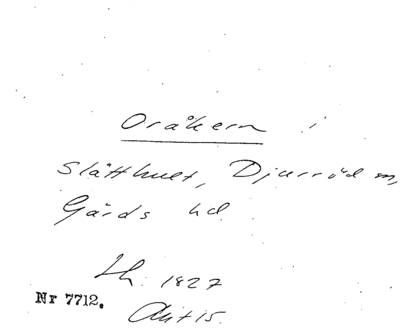 Oråkern i
Slätthult, Djurröd sn,
Gärds hd.
Lh. 1827
Nr 7712.
Akt 15.